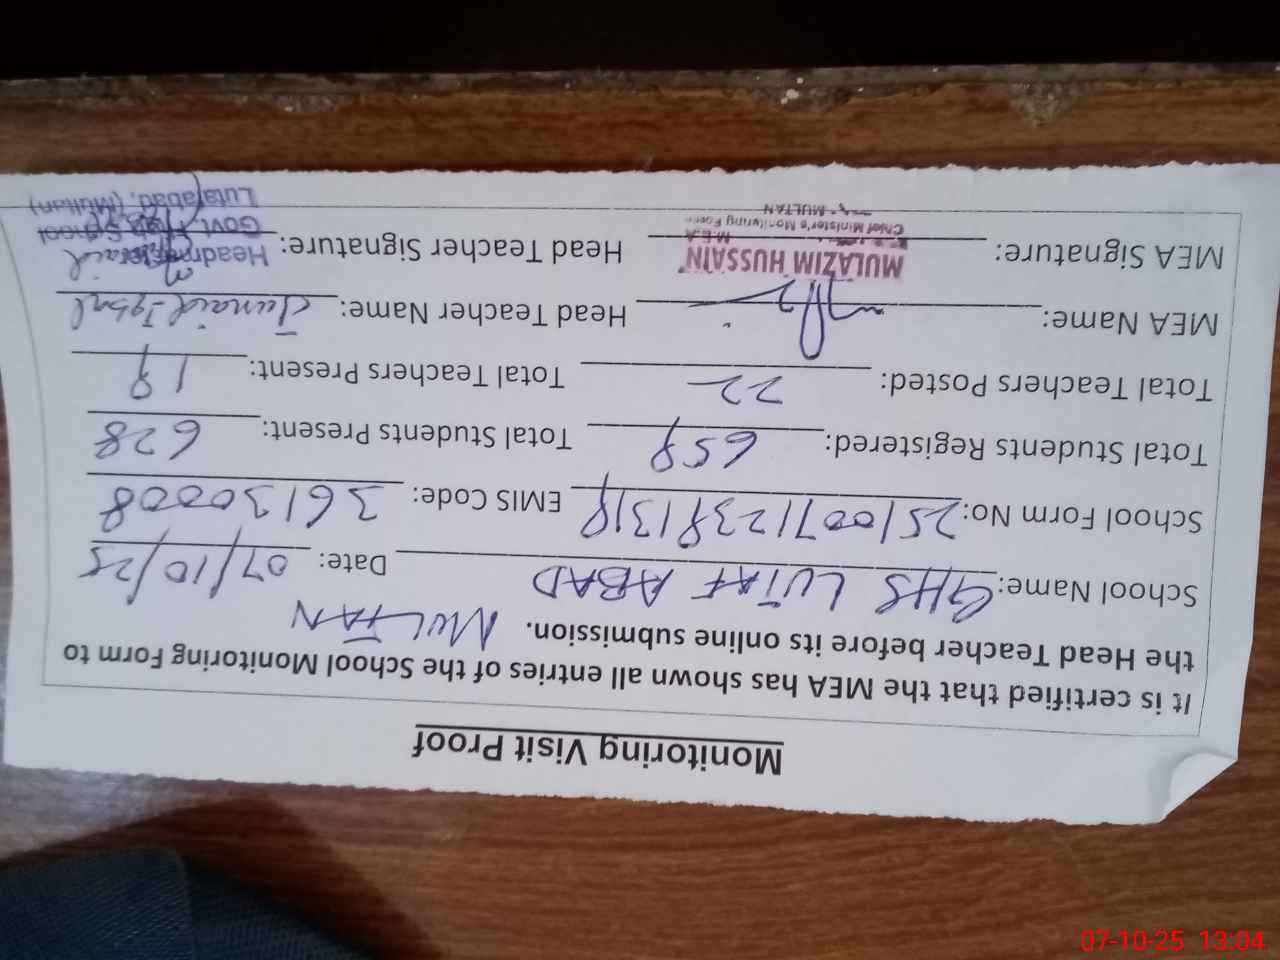 Monitoring Visit Proof
It is certified that the MEA has shown all entries of the School Monitoring Form to
the Head Teacher before its online submission. MULTAN
School Name: GHS LUTAF ABAD Date: 07/10/25
School Form No: 25/007/239/319 EMIS Code: 36130008
Total Students Registered: 659 Total Students Present: 628
Total Teachers Posted: 22 Total Teachers Present: 19
MEA Name: Head Teacher Name: Junaid Iqbal
MEA Signature: Head Teacher Signature:
MULAZIM HUSSAIN
M.E.A
Chief Minister's Monitoring Force
MULTAN
Headmaster
Govt. High School
Lutafabad, (Multan)
07-10-25 13:04